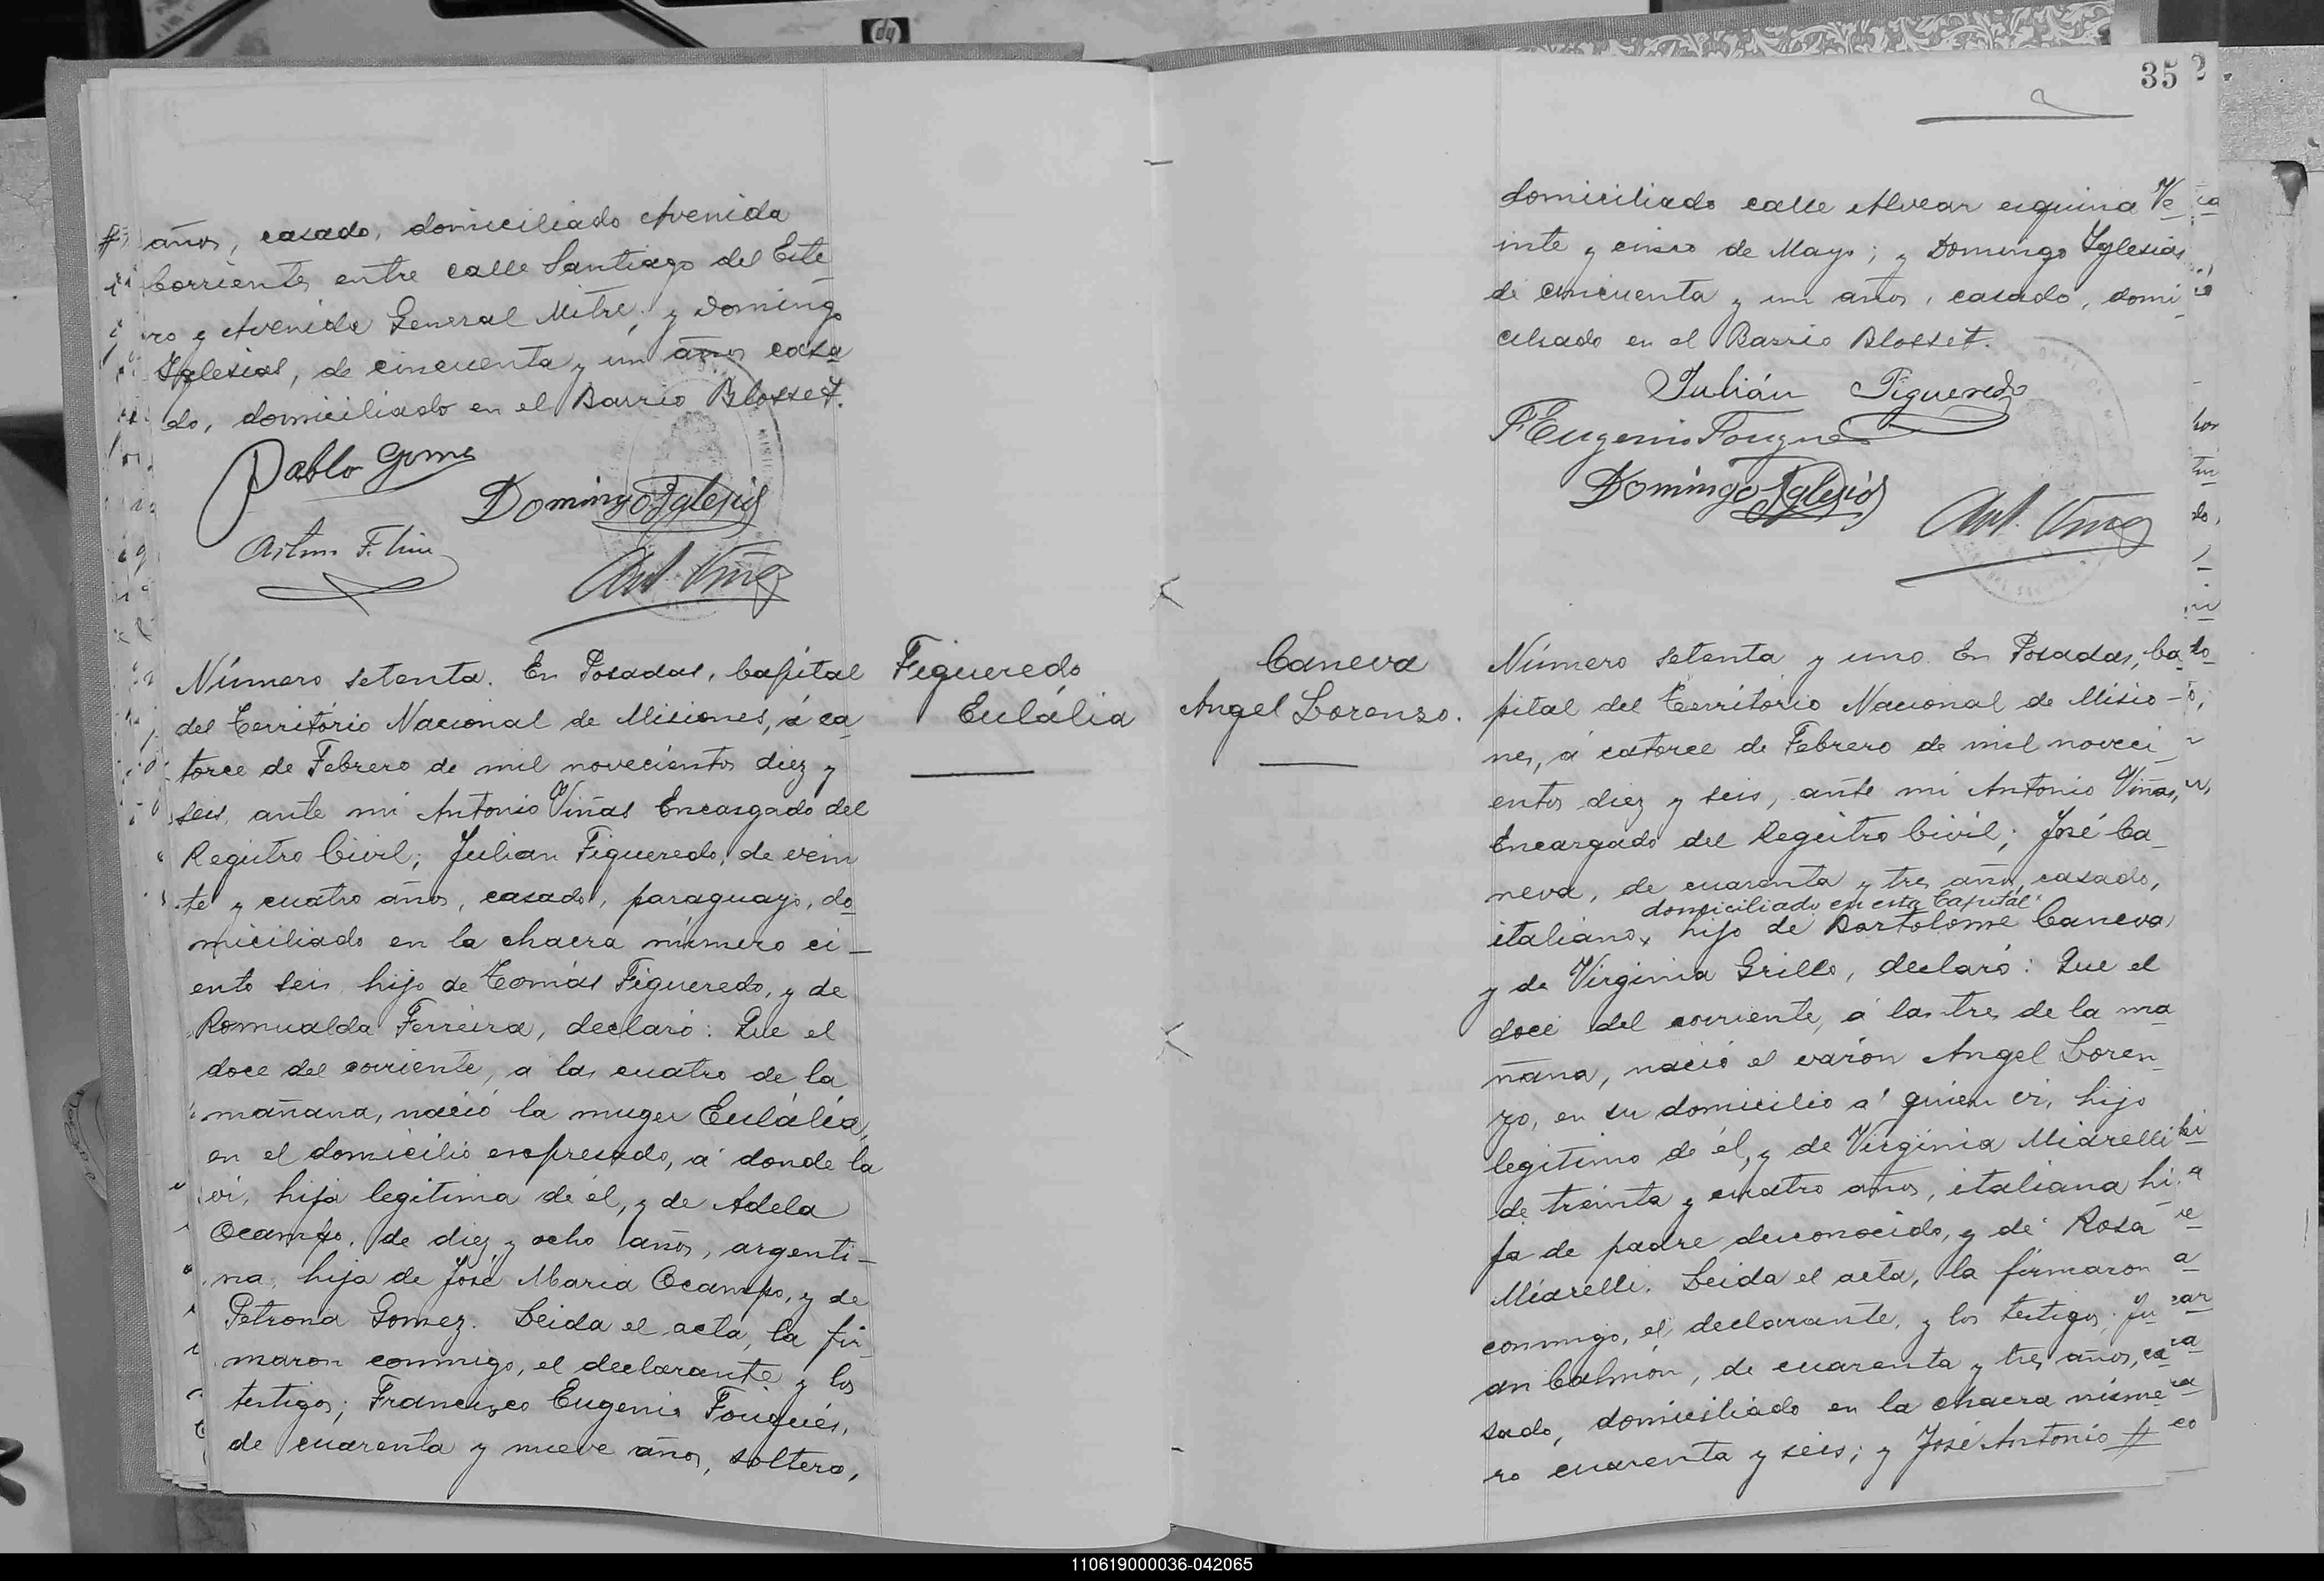 años, casado, domiciliado Avenida
Corrientes entre calle Santiago del Este
ro y Avenida General Mitre; y Domingo
Iglesias, de cincuenta y un años casa
do, domiciliado en el Barrio Blosset.
Pablo Gomez
Domingo Iglesias
Ant. Viñas
Número setenta. En Posadas, Capital
del Território Nacional de Misiones, á ca
torce de Febrero de mil novecientos diez y
seis, ante mi Antonio Viñas Encargado del
Registro Civil; Julian Figueredo, de vein
te y cuatro años, casado, paraguayo, do
miciliado en la chacra número ci-
ento seis, hijo de Tomás Figueredo, y de
Romualda Ferreira, declaró: Que el
doce del corriente, a las cuatro de la
mañana, nació la muger Eulália,
en el domicilio expresado, á donde la
vi, hija legitima de él, y de Adela
Ocampo, de diez y ocho años, argenti-
na, hija de José Maria Ocampo, y de
Petrona Gomez. Leida el acta, la fir-
maron conmigo, el declarante y los
testigos; Francisco Eugenio Fouques,
de cuarenta y nueve años, soltero,
Figueredo
Eulália
35
domiciliado calle Alvear esquina Ve
inte y cinco de Mayo; y Domingo Iglesias
de cincuenta y un años, casado, domi
ciliado en el Barrio Blosset.
Julián Figueredo
F Eugenio Fouques
Domingo Iglesias
Ant. Viñas
Caneva
Angel Lorenzo.
Número setenta y uno. En Posadas, Ca
pital del Território Nacional de Misio-
nes, á catorce de Febrero de mil noveci
entos diez y seis, ante mi Antonio Viñas,
Encargado del Registro Civil; José Ca
neva, de cuarenta y tres años, casado,
domiciliado en esta Capital
italiano, hijo de Bartolome Caneva
y de Virginia Grillo, declaró: Que el
doce del corriente, á las tres de la ma
ñana, nació el varón Angel Loren
zo, en su domicilio á quien vi, hijo
legitimo de él, y de Virginia Miarelli
de treinta y cuatro años, italiana hi
ja de padre desconocido, y de Rosa
Miarelli. Leida el acta, la firmaron
conmigo, el declarante, y los testigos; Ju
an Calmón, de cuarenta y tres años, ca
sado, domiciliado en la chacra núme
ro cuarenta y seis; y José Antonio #
110619000036-042065